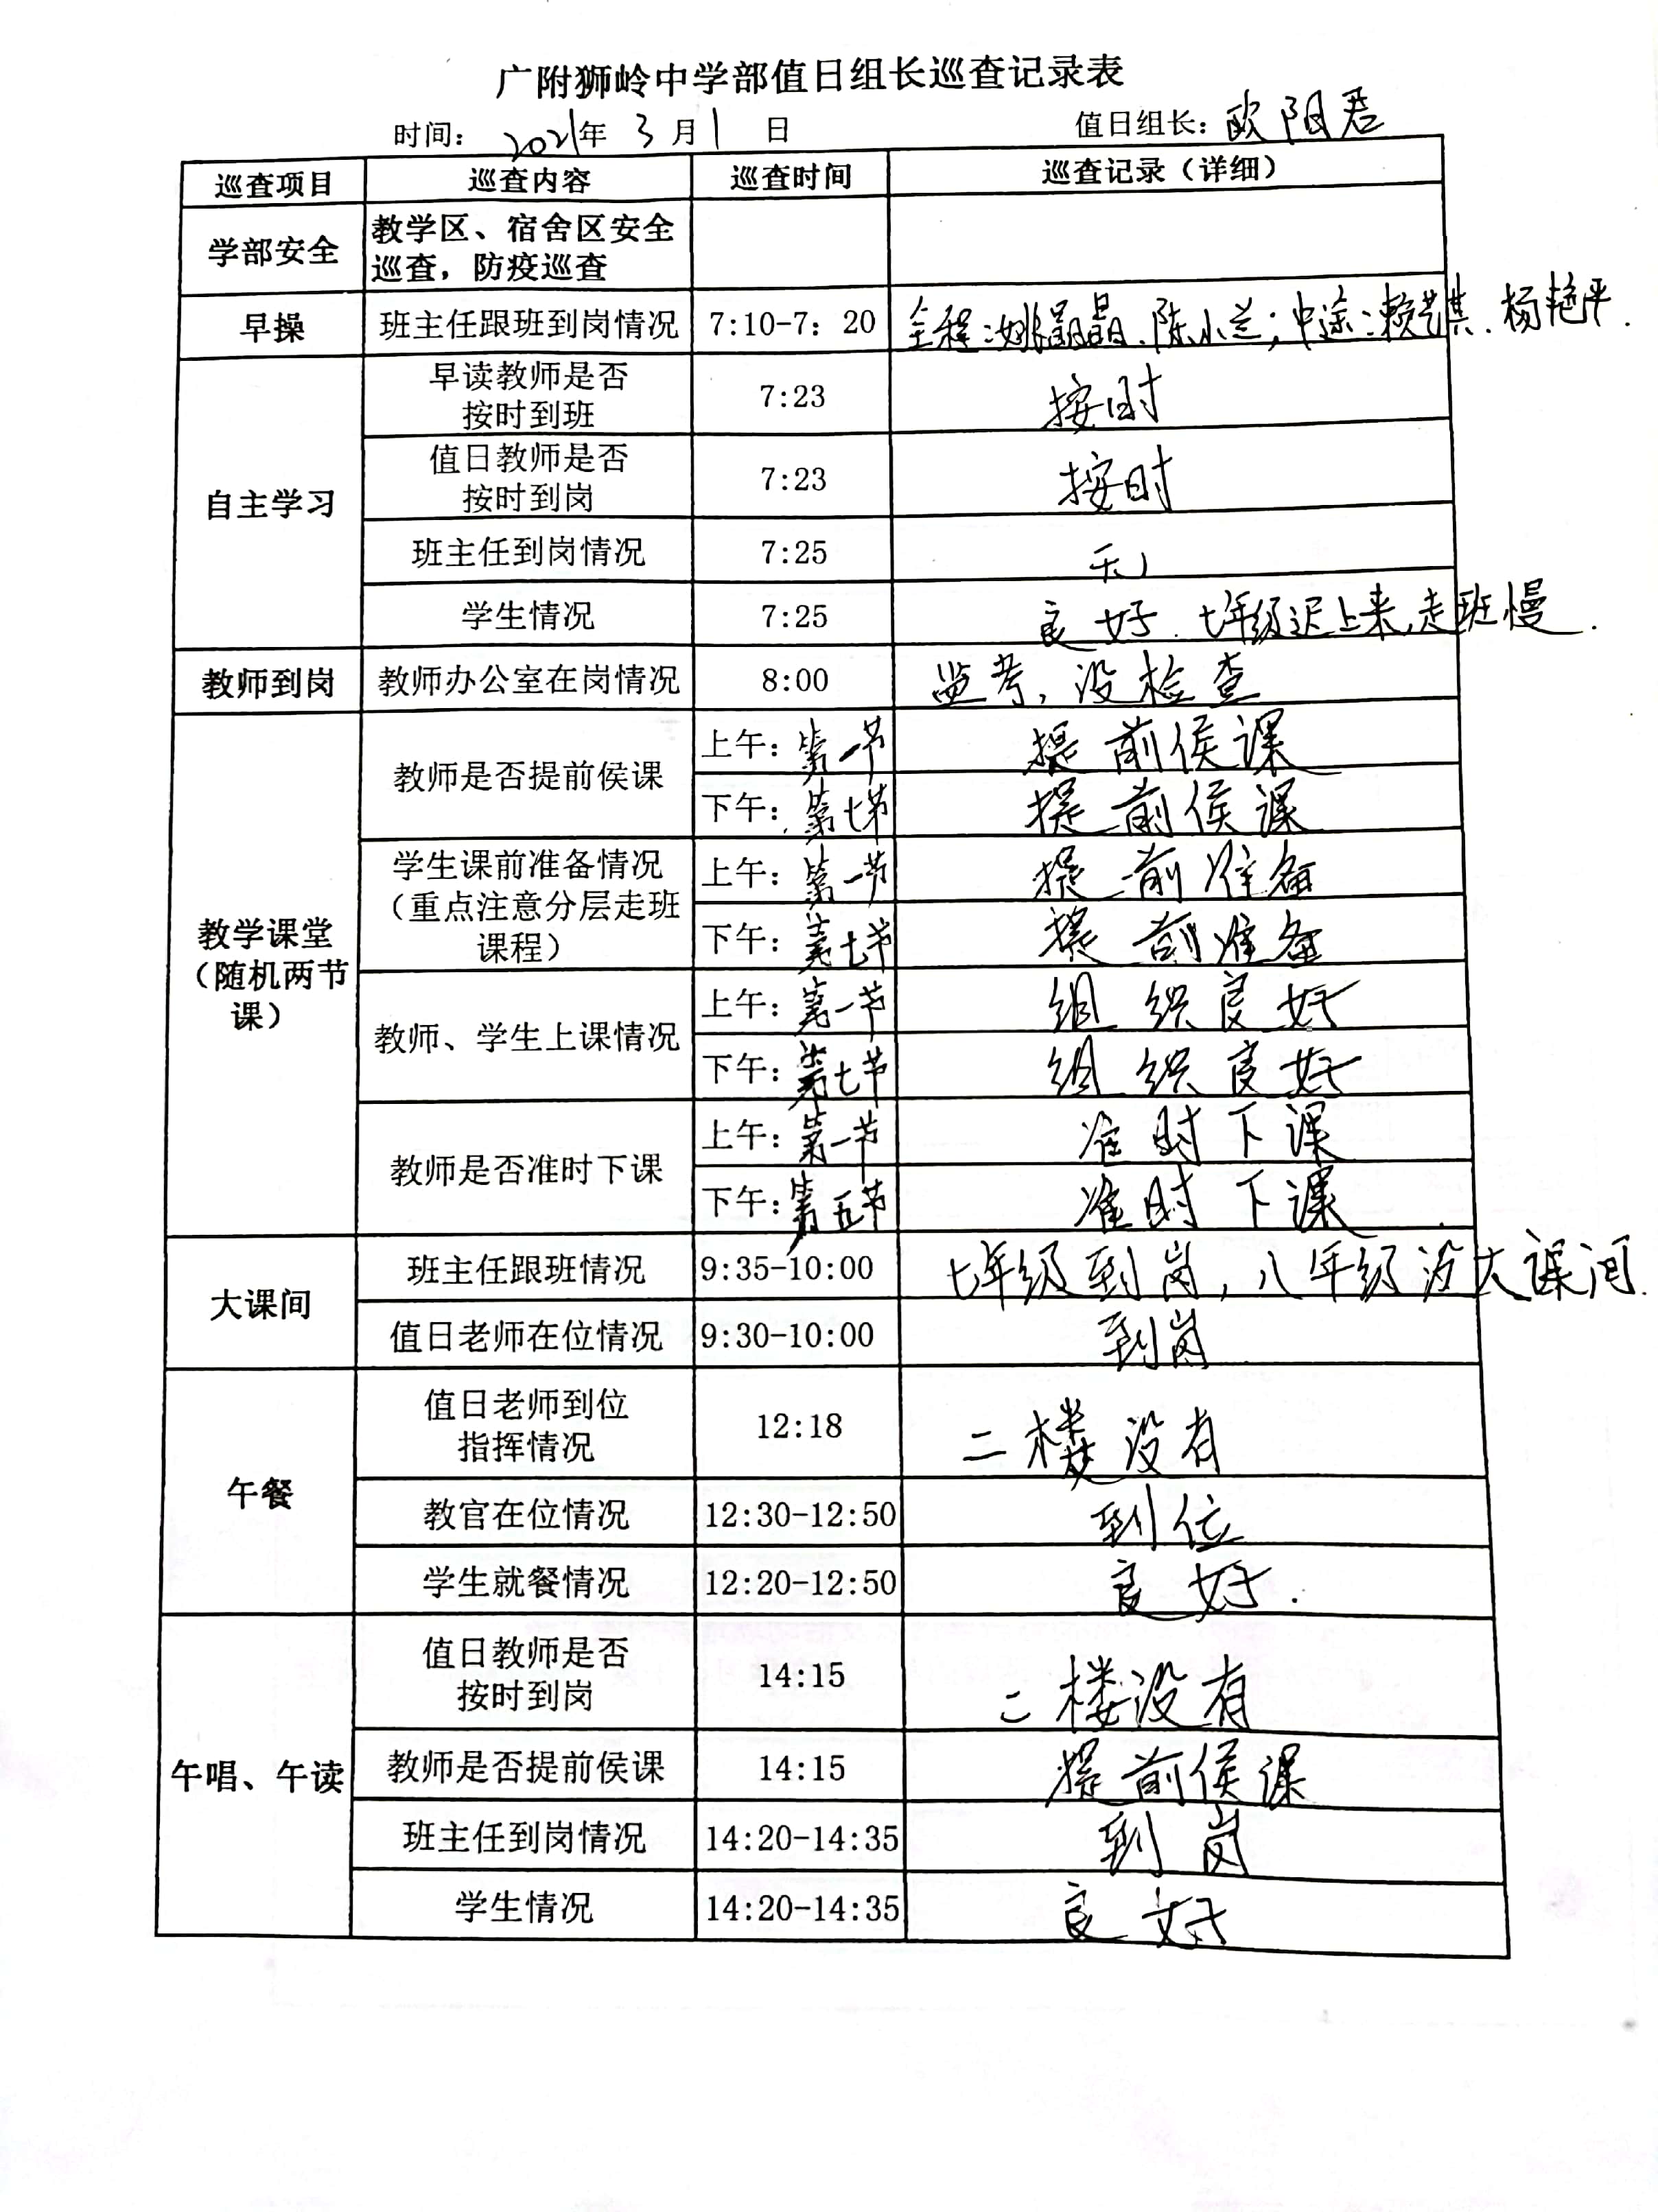 广附狮岭中学部值日组长巡查记录表
时间：2021年 3月 1 日 值日组长：欧阳君
巡查项目 巡查内容 巡查时间 巡查记录（详细）
学部安全 教学区、宿舍区安全
巡查，防疫巡查
早操 班主任跟班到岗情况 7:10-7：20 全程：姚晶晶、陈小兰；中途：赖艺其、杨艳平.
自主学习
早读教师是否
按时到班 7:23 按时
值日教师是否
按时到岗 7:23 按时
班主任到岗情况 7:25
学生情况 7:25 良好.七年级迟上来,走班慢.
教师到岗 教师办公室在岗情况 8:00 监考，没检查
教学课堂
（随机两节
课）
教师是否提前侯课 上午：第一节 提前侯课
下午：第七节 提前侯课
学生课前准备情况
（重点注意分层走班
课程） 上午：第一节 提前准备
下午：第七节 提前准备
教师、学生上课情况 上午：第一节 组织良好
下午：第七节 组织良好
教师是否准时下课 上午：第一节 准时下课
下午：第五节 准时下课
大课间
班主任跟班情况 9:35-10:00 七年级到岗，八年级没大课间.
值日老师在位情况 9:30-10:00 到岗
午餐
值日老师到位
指挥情况 12:18 二楼没有
教官在位情况 12:30-12:50 到位
学生就餐情况 12:20-12:50 良好.
午唱、午读
值日教师是否
按时到岗 14:15 二楼没有
教师是否提前侯课 14:15 提前侯课
班主任到岗情况 14:20-14:35 到岗
学生情况 14:20-14:35 良好